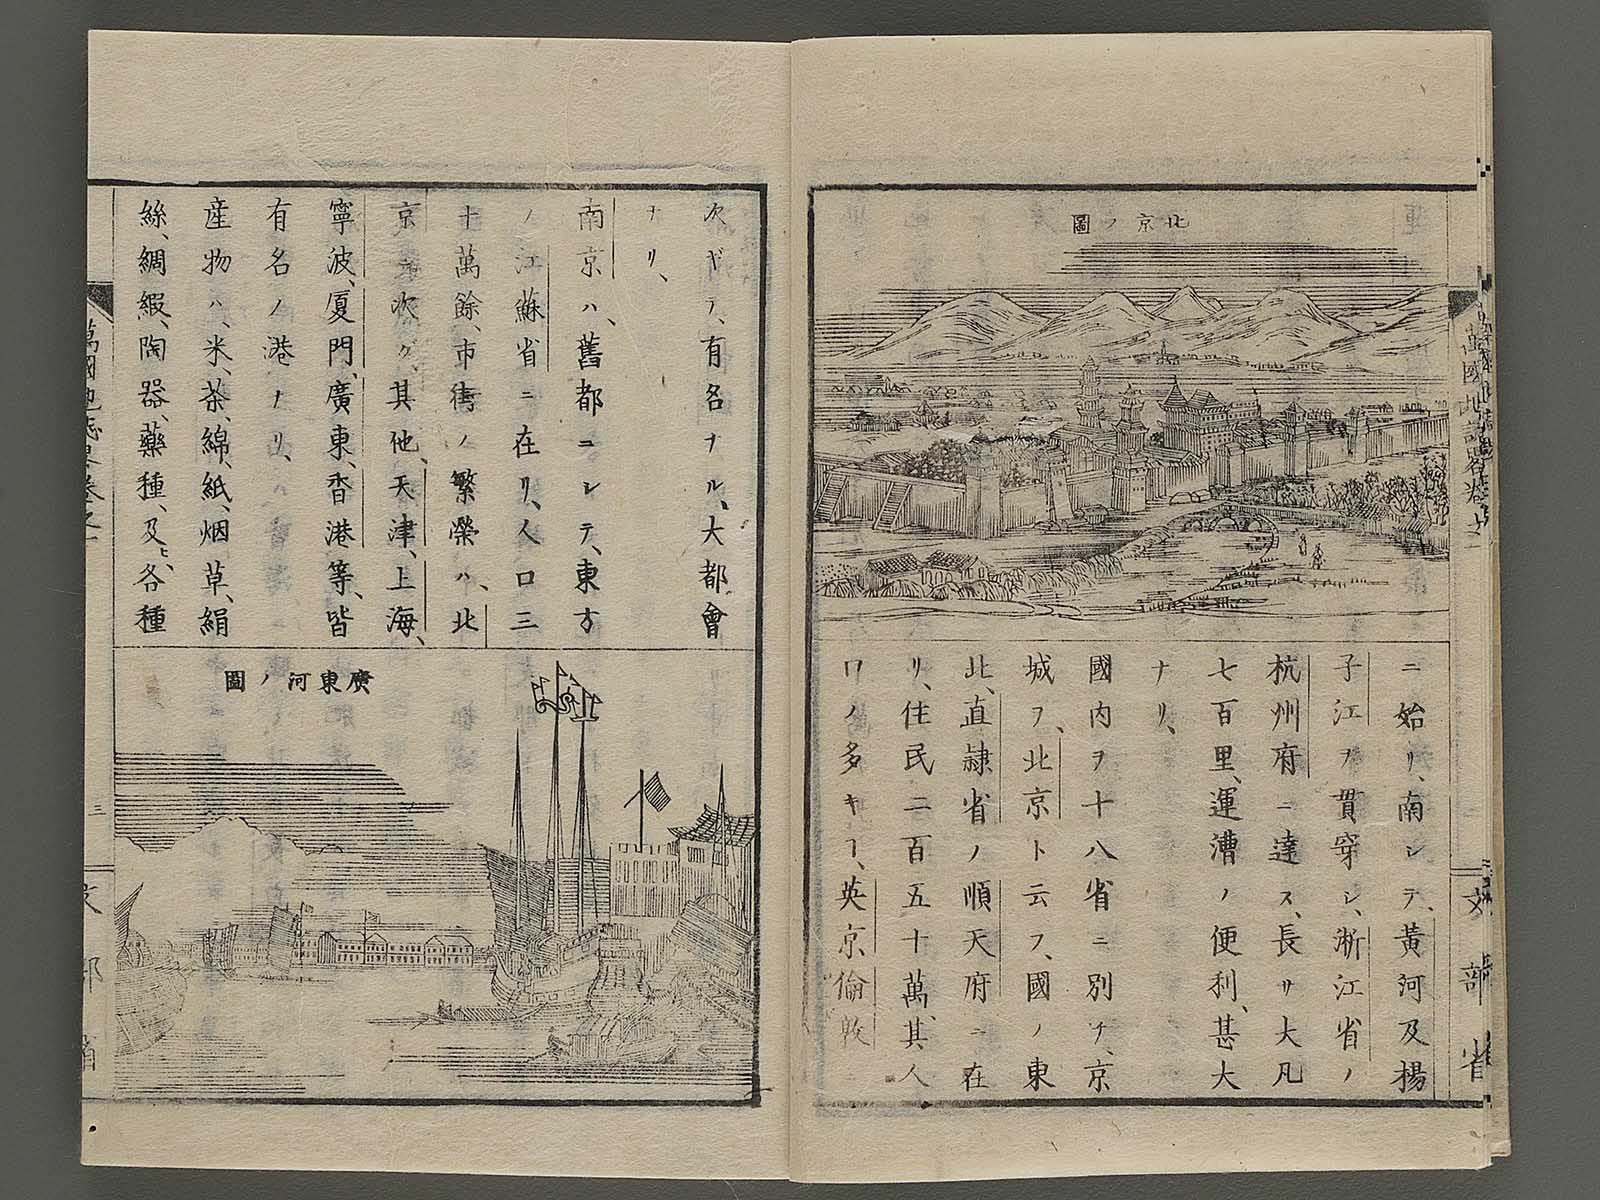 北京ノ圖
ニ始リ、南シテ、黃河及揚
子江ヲ貫穿シ、淅江省ノ
杭州府ニ達ス、長サ大凡
七百里、運漕ノ便利、甚大
ナリ、
國内ヲ十八省ニ別チ、京
城ヲ、北京ト云フ、國ノ東
北、直隷省ノ順天府ニ在
リ、住民二百五十萬、其人
口ノ多キヿ、英京倫敦
文部省
次デ、有名ナル、大都會
ナリ、
南京ハ、舊都ニシテ、東方
ノ江蘇省ニ在リ、人口三
十萬餘、市街ノ繁榮ハ、北
京ニ次グ、其他、天津、上海、
寧波、厦門、廣東、香港等、皆
有名ノ港ナリ、
産物ハ、米、茶、綿、紙、烟草、絹
絲、綢緞、陶器、藥種、及ヒ、各種
廣東河ノ圖
萬國地誌畧卷之一
三
文部省